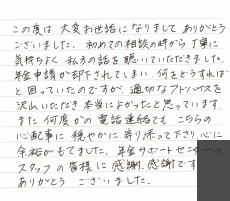 この度は、大変お世話になりまして ありがとう
ございました。初めての相談の時から 丁寧に
気持ちよく 私方の話を 聴いていただきました。
年金申請が却下されてしまい、何をどうすれば
と 困っていたのですが、適切なアドバイスを
沢山いただき 本当によかったと思っています。
また 何度かの 電話連絡でも、こちらの
心配事に 穏やかに 寄り添って下さり、心に
余裕がもてました。年金サポートセンターの
スタッフの皆様に 感謝、感謝です
ありがとう ございました。